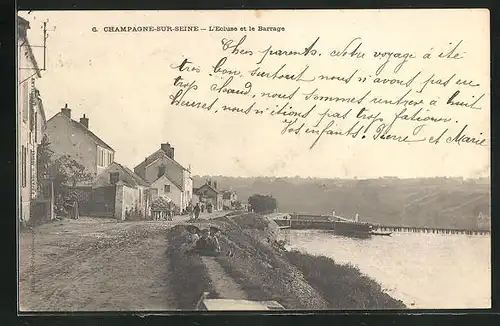 6. CHAMPAGNE-SUR-SEINE — L'Ecluse et le Barrage
Chers parents. Notre voyage à été
très bon, surtout nous n'avons pas eu
trop chaud, nous sommes entrés à huit
heures, nous n'étions pas trop fatigués.
Vos enfants. Pierre et Marie